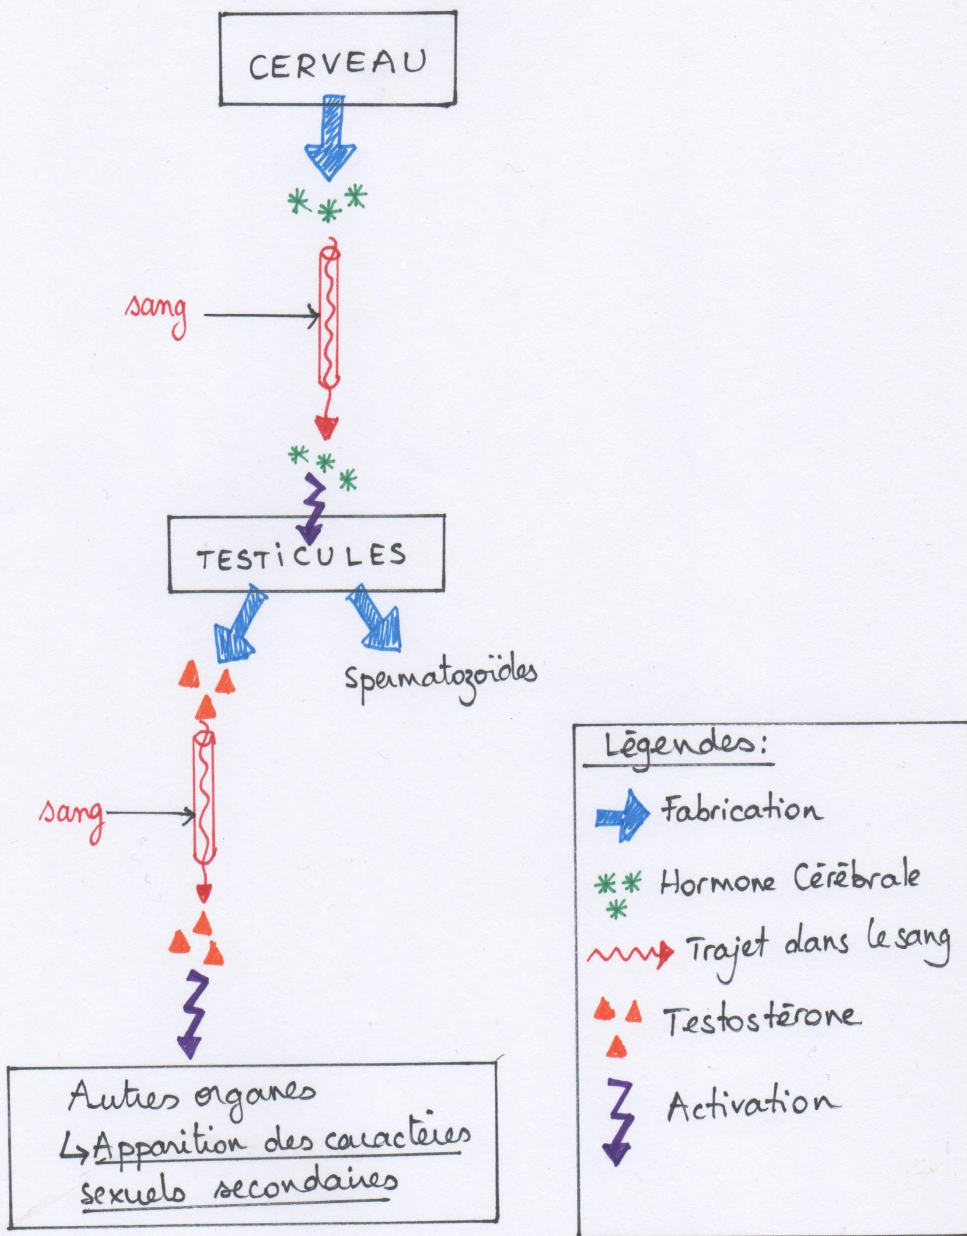 CERVEAU
sang
TESTICULES
Spermatozoïdes
sang
Autres organes
↳ Apparition des caractères
sexuels secondaires
Légendes:
Fabrication
Hormone Cérébrale
Trajet dans le sang
Testostérone
Activation